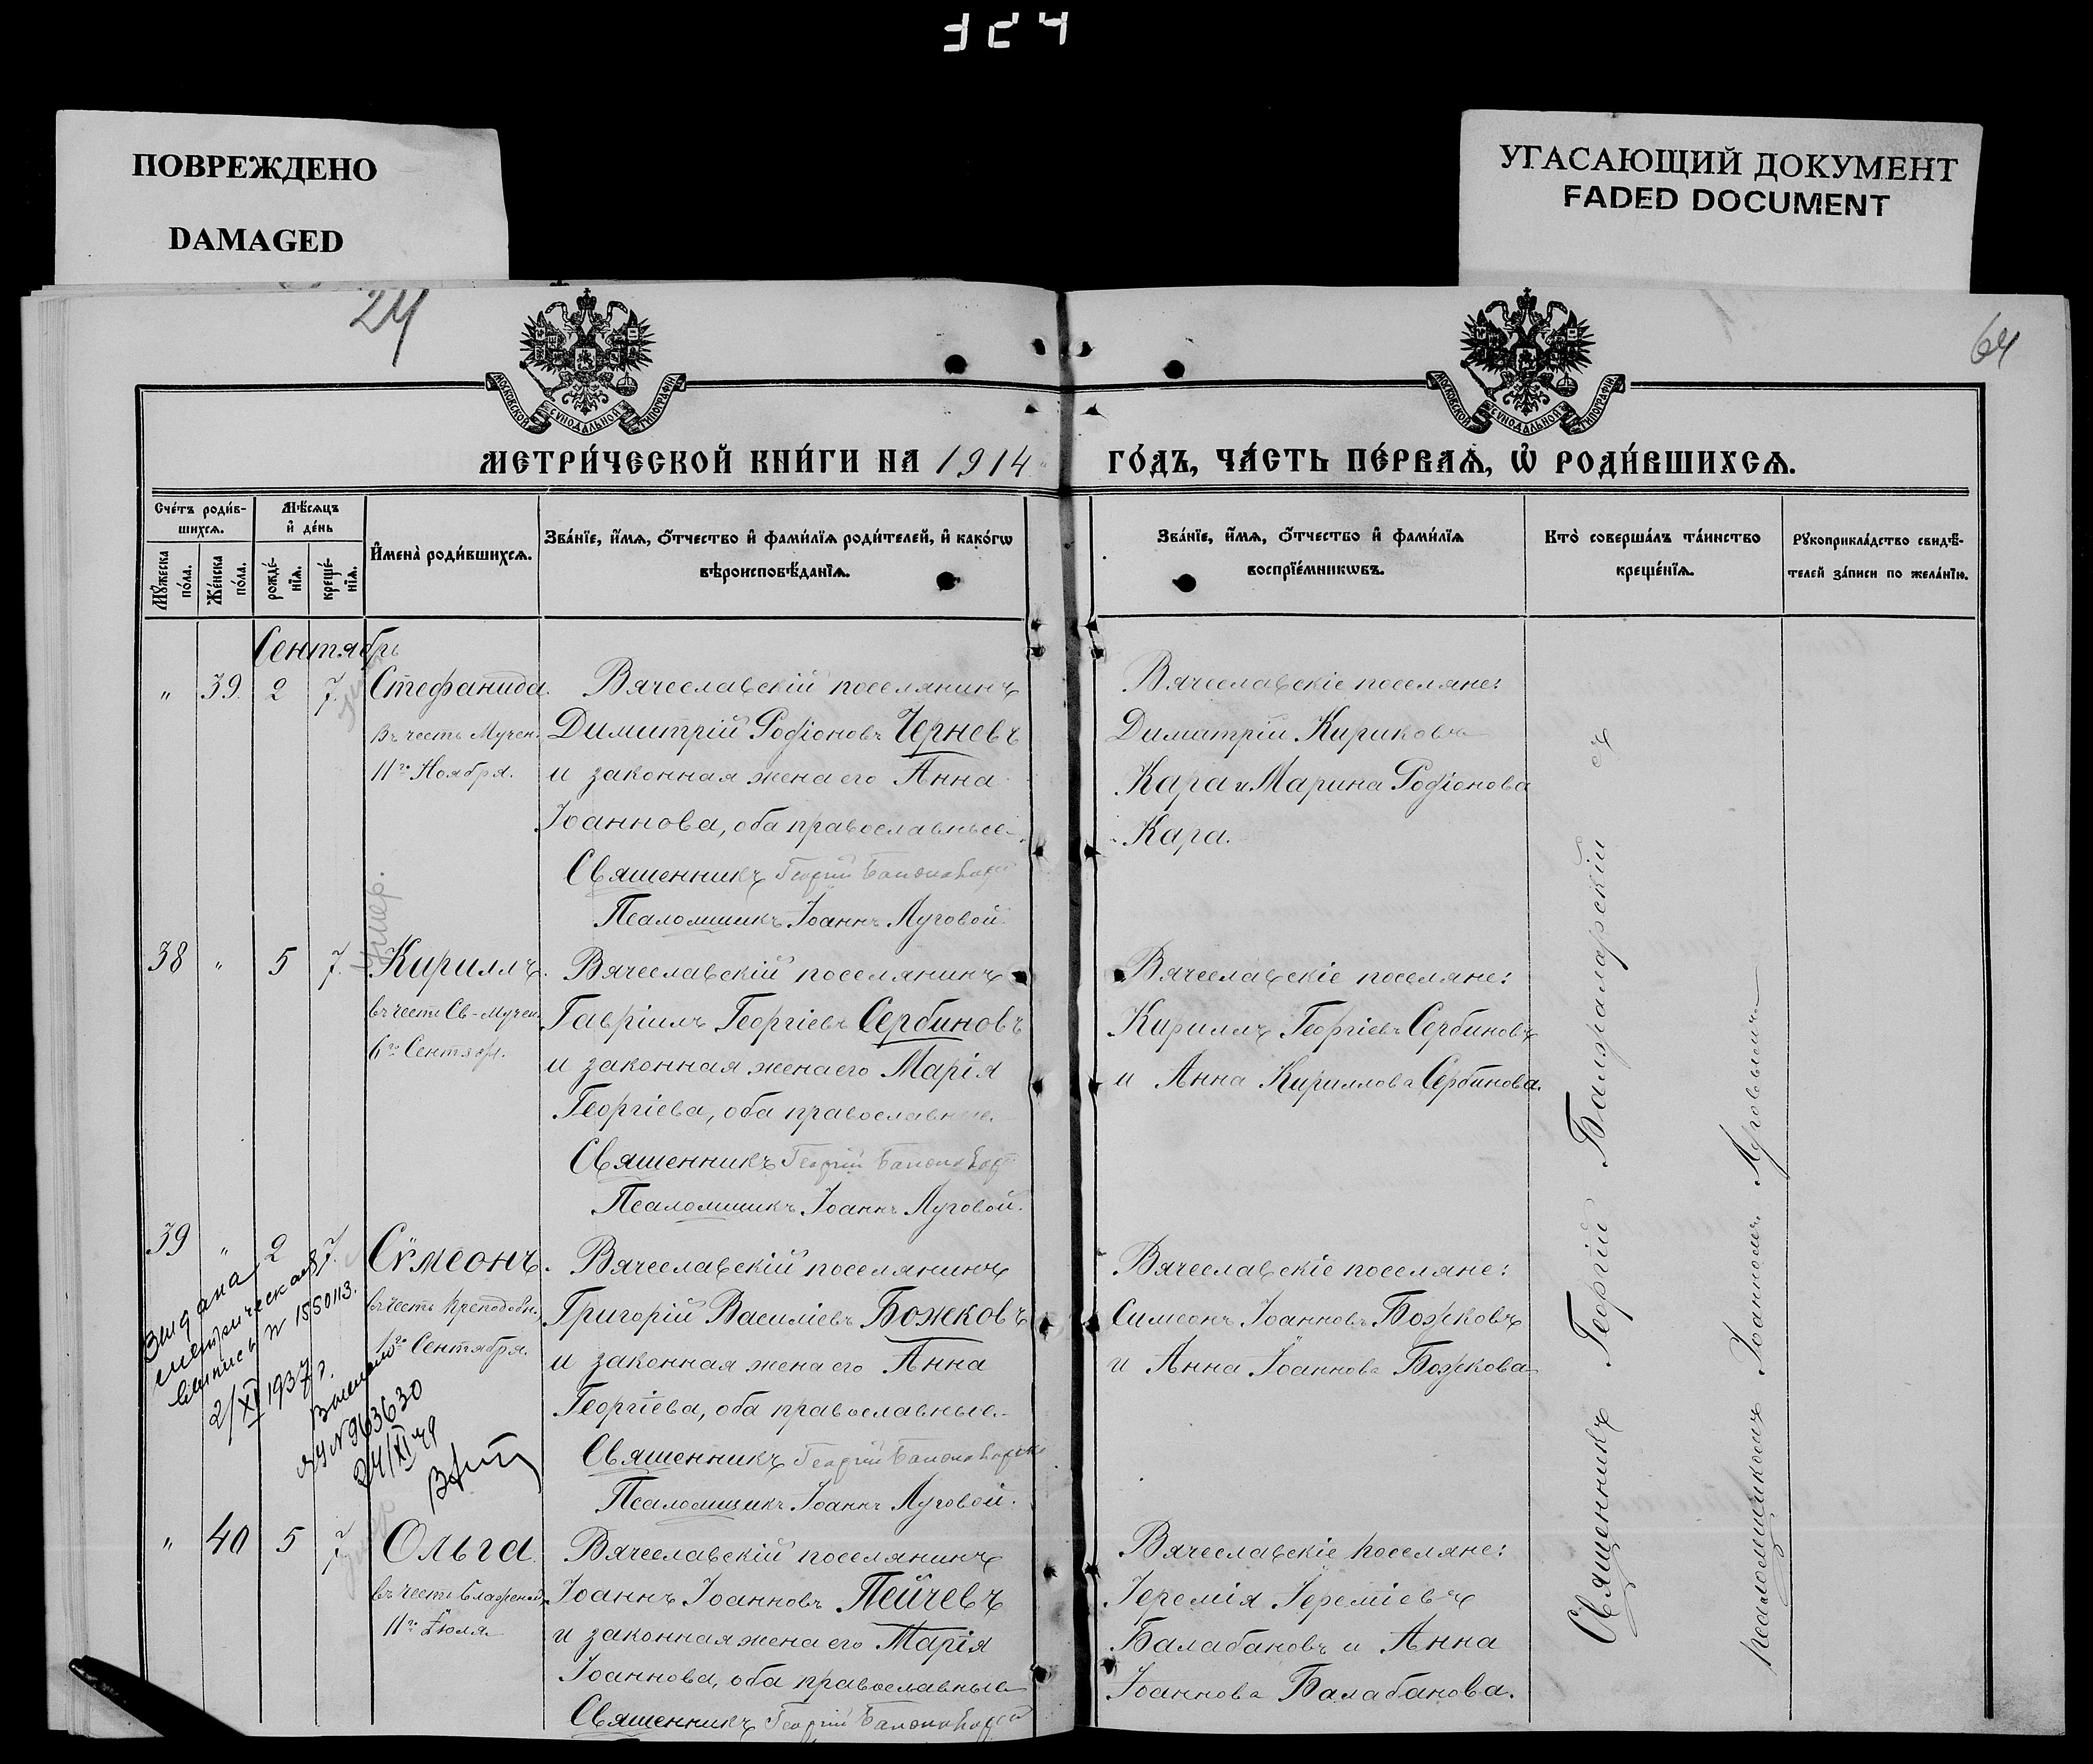 324
ПОВРЕЖДЕНО
DAMAGED
УГАСАЮЩИЙ ДОКУМЕНТ
FADED DOCUMENT
24
64
МОСКОВСКОЙ СѴНОДАЛЬНОЙ ТИПОГРАФІИ
МОСКОВСКОЙ СѴНОДАЛЬНОЙ ТИПОГРАФІИ
МЕТРИ́ЧЕСКОЙ КНИ́ГИ НА 1914
ГО́ДЪ, ЧА́СТЬ ПЕ́РВАѦ, Ѡ҆ РОДИ́ВШИХСѦ.
Сче́тъ роди́в-
шихсѧ.
Мѣ́сѧцъ
и҆ де́нь
Мꙋ́жеска
по́ла.
Же́нска
по́ла.
рожде́-
нїѧ.
креще́-
нїѧ.
И҆мена̀ роди́вшихсѧ.
Зва́нїе, и҆́мѧ, ѻ҆́тчество и҆ фами́лїѧ роди́телей, и҆ како́гѡ
вѣроисповѣ́данїѧ.
Зва́нїе, и҆́мѧ, ѻ҆́тчество и҆ фами́лїѧ
воспрїе́мникѡвъ.
Кто̀ соверша́лъ та́инство
креще́нїѧ.
Рꙋкоприкла́дство свидѣ́-
телей за́писи по жела́нїю.
Сентябрь
" 39. 2 7. Стефанида.
въ честь Мучен.
11го Ноября.
Вячеславскій поселянинъ
Димитрій Родіоновъ Черневъ
и законная жена его Анна
Іоаннова, оба православные.
Священникъ Георгій
Псаломщикъ Іоаннъ Луговой.
Вячеславскіе поселяне:
Димитрій Кириковъ
Кара и Марина Родіонова
Кара.
умер.
38 " 5 7. Кириллъ.
въ честь Св-мучен.
6го Сентябр.
Вячеславскій поселянинъ
Гавріилъ Георгіевъ Сербиновъ
и законная жена его Марія
Георгіева, оба православные.
Священникъ Георгій
Псаломщикъ Іоаннъ Луговой.
Вячеславскіе поселяне:
Кириллъ Георгіевъ Сербиновъ
и Анна Кириллова Сербинова.
39 " 2 7. Сѵмеонъ.
въ честь преподобн.
1го Сентября.
Вячеславскій поселянинъ
Григорій Василіевъ Божковъ
и законная жена его Анна
Георгіева, оба православные.
Священникъ Георгій
Псаломщикъ Іоаннъ Луговой.
Вячеславскіе поселяне:
Симеонъ Іоанновъ Божковъ
и Анна Іоаннова Божкова
Выдана
метрическая
выпись № 1550113.
2/XI 1937 г.
№ 963630
24/XI 49
" 40 5 7 Ольга.
въ честь блаженой,
11го Іюля.
Вячеславскій поселянинъ
Іоаннъ Іоанновъ Пейчевъ
и законная жена его Марія
Іоаннова, оба православные
Священникъ Георгій
Вячеславскіе поселяне:
Іеремія Іереміевъ
Балабановъ и Анна
Іоаннова Балабанова.
Священникъ Георгій Балжаларскій съ
псаломщикомъ Іоанномъ Луговымъ